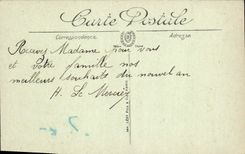 Carte Postale
Correspondance
Adresse
Recevez Madame pour vous
et votre famille nos
meilleurs souhaits du nouvel an
H. Le Mercier